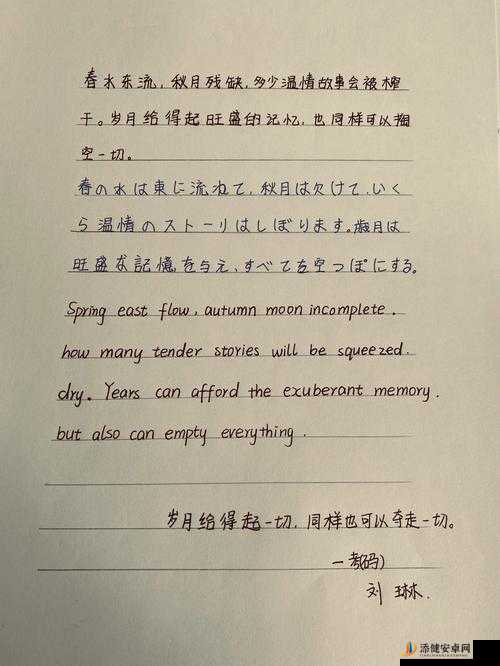 春水东流，秋月残缺，多少温情故事会被榨
干。岁月给得起旺盛的记忆，也同样可以掏
空一切。
春の水は東に流れて，秋月は欠けて，いく
ら温情のストーリはしぼります。歳月は
旺盛な記憶を与え、すべてを空っぽにする。
Spring east flow, autumn moon incomplete.
how many tender stories will be squeezed.
dry. Years can afford the exuberant memory.
but also can empty everything.
岁月给得起一切，同样也可以夺走一切。
刘琳.
添健安卓网